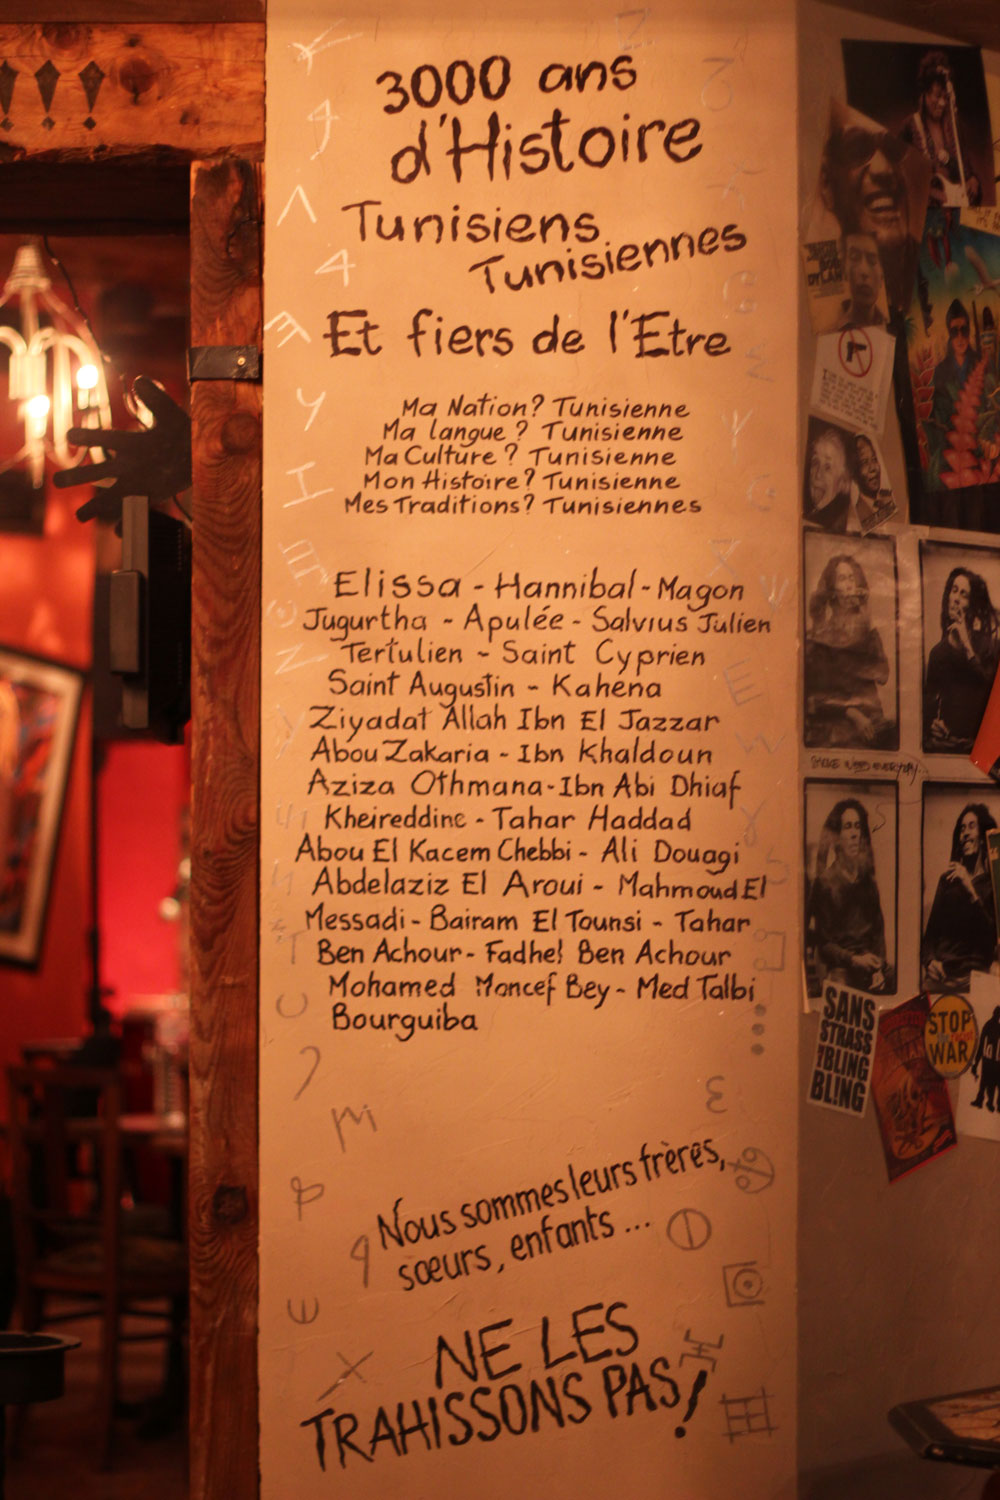 3000 ans
d'Histoire
Tunisiens
Tunisiennes
Et fiers de l'Etre
Ma Nation? Tunisienne
Ma langue ? Tunisienne
Ma Culture ? Tunisienne
Mon Histoire? Tunisienne
Mes Traditions? Tunisiennes
Elissa - Hannibal - Magon
Jugurtha - Apulée - Salvius Julien
Tertulien - Saint Cyprien
Saint Augustin - Kahena
Ziyadat Allah Ibn El Jazzar
Abou Zakaria - Ibn Khaldoun
Aziza Othmana - Ibn Abi Dhiaf
Kheireddine - Tahar Haddad
Abou El Kacem Chebbi - Ali Douagi
Abdelaziz El Aroui - Mahmoud El
Messadi - Bairam El Tounsi - Tahar
Ben Achour - Fadhel Ben Achour
Mohamed Moncef Bey - Med Talbi
Bourguiba
Nous sommes leurs frères,
sœurs, enfants ...
NE LES
TRAHISSONS PAS!
SANS
STRASS
BLING
BLING
STOP
WAR